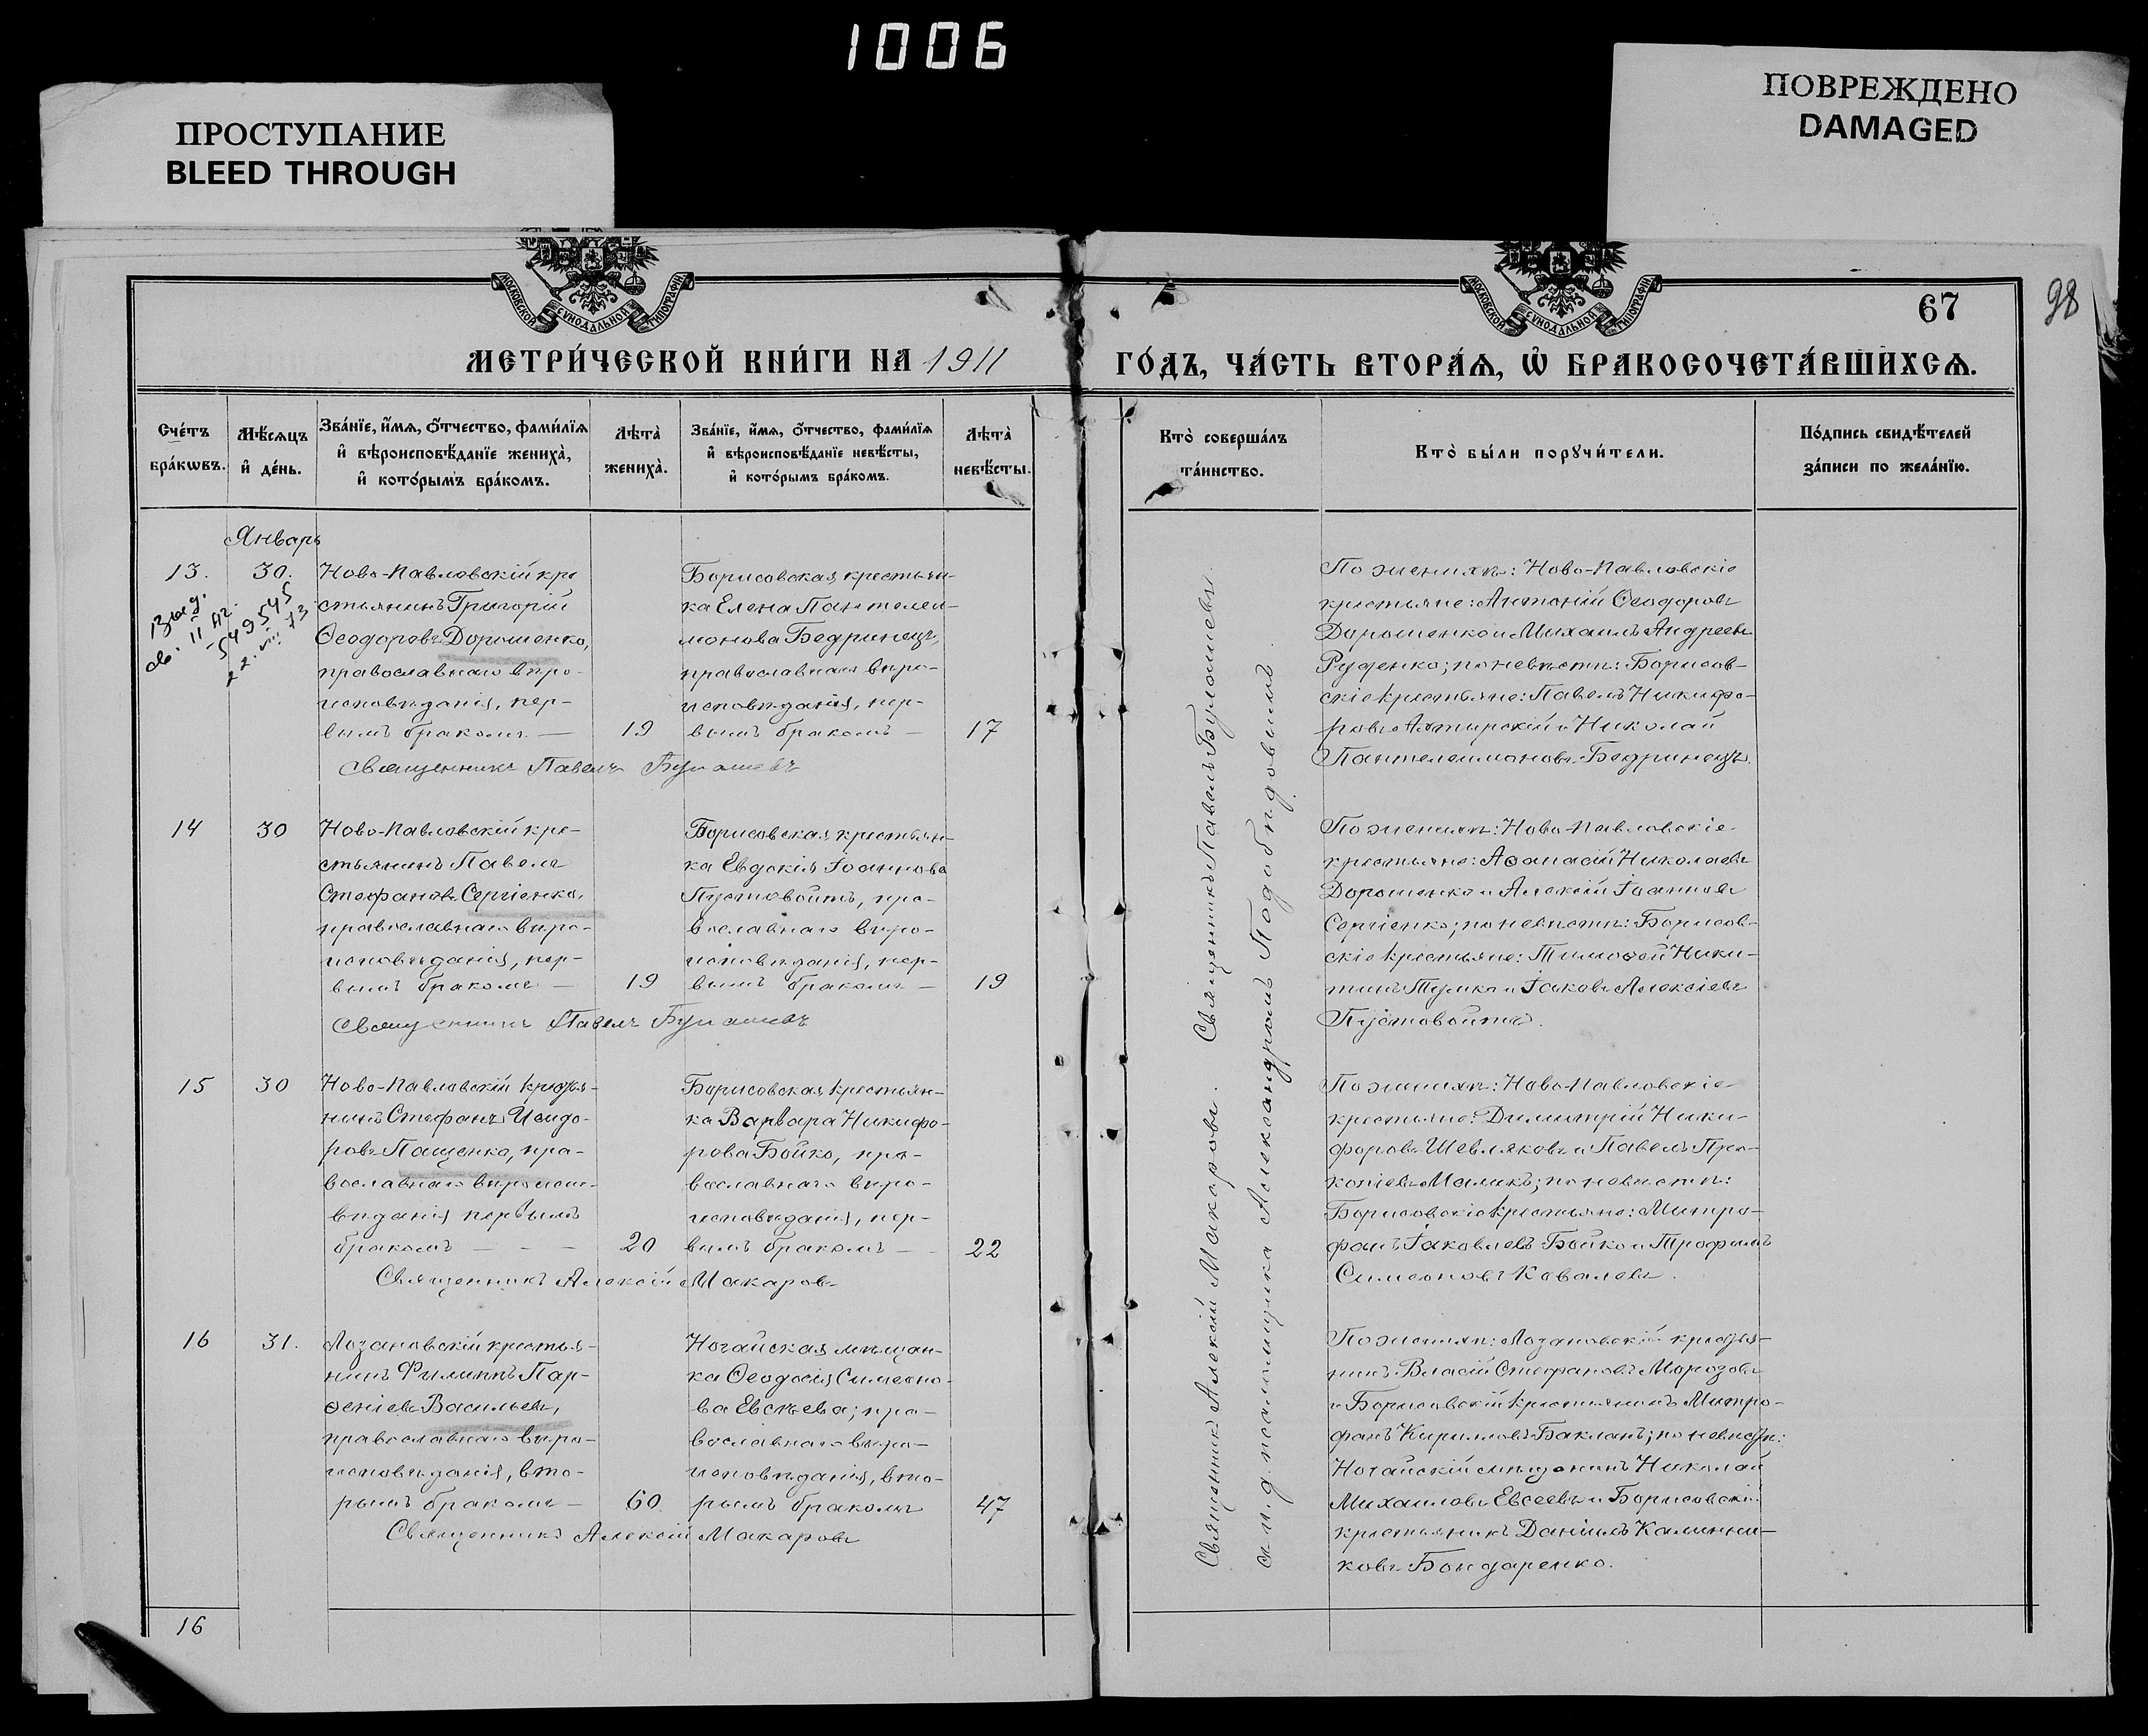 1006
ПРОСТУПАНИЕ
BLEED THROUGH
ПОВРЕЖДЕНО
DAMAGED
МОСКОВСКОЙ СУНОДАЛЬНОЙ ТИПОГРАФІИ
МОСКОВСКОЙ СУНОДАЛЬНОЙ ТИПОГРАФІИ
67
98
МЕТРИ́ЧЕСКОЙ КНИ́ГИ НА 1911
ГО́ДЪ, ЧА́СТЬ ВТОРА́Ѧ, Ѽ БРАКОСОЧЕТА́ВШИХСѦ.
Сче́тъ
бра́кѡвъ.
Мѣ́сѧцъ
и҆ де́нь.
Зва́нїе, и҆́мѧ, ѻ҆́тчество, фами́лїѧ
и҆ вѣроисповѣ́данїе жениха̀,
и҆ кото́рымъ бра́комъ.
Лѣта̀
жениха̀.
Зва́нїе, и҆́мѧ, ѻ҆́тчество, фами́лїѧ
и҆ вѣроисповѣ́данїе невѣ́сты,
и҆ кото́рымъ бра́комъ.
Лѣта̀
невѣ́сты.
Кто̀ соверша́лъ
та́инство.
Кто̀ бы́ли порꙋчи́тели.
По́дпись свидѣ́телей
за́писи по жела́нїю.
Январь
13.
30.
Ново-Павловскій кре
стьянинъ Григорій
Ѳеодоровъ Дорошенко,
православнаго вѣро-
исповѣданія, пер-
вымъ бракомъ. —
19
Борисовская крестьян-
ка Елена Пантелеи-
монова Бедринецъ,
православнаго вѣро-
исповѣданія, пер-
вымъ бракомъ —
17
Священникъ Павелъ Булашевъ
По женихѣ: Ново-Павловскіе
крестьяне: Антоній Ѳеодоровъ
Дорошенко и Михаилъ Андреевъ
Руденко; по невѣстѣ: Борисов-
скіе крестьяне: Павелъ Никифо-
ровъ Ахтирскій и Николай
Пантелеимоновъ Бедринецъ.
14
30
Ново-Павловскій кре-
стьянинъ Павелъ
Стефановъ Сергіенко,
православнаго вѣро-
исповѣданія, пер-
вымъ бракомъ —
19
Борисовская крестьян-
ка Евдокія Іоаннова
Пустовойтъ, пра-
вославнаго вѣро-
исповѣданія, пер-
вымъ бракомъ —
19
Священникъ Павелъ Булашевъ
По женихѣ: Ново-Павловскіе
крестьяне: Аѳанасій Николаевъ
Дорошенко и Алексій Іоанновъ
Сергіенко; по невѣстѣ: Борисов-
скіе крестьяне: Тимоѳей Ники-
тинъ Тулика и Іаковъ Алексіевъ
Пустовойтъ.
15
30
Ново-Павловскій крестья-
нинъ Стефанъ Исидо-
ровъ Пащенко, пра-
вославнаго вѣроиспо-
вѣданія первымъ
бракомъ — — —
20
Борисовская крестьян-
ка Варвара Никифо-
рова Бойко, пра-
вославнаго вѣро-
исповѣданія, пер-
вымъ бракомъ —
22
Священникъ Алексій Макаровъ
По женихѣ: Ново-Павловскіе
крестьяне: Димитрій Ники-
форовъ Шевляковъ и Павелъ Про-
копіевъ Маликъ; по невѣстѣ:
Борисовскіе крестьяне: Митро-
фанъ Іаковлевъ Бойко и Трофимъ
Симеоновъ Ковалевъ.
16
31.
Лозановскій крестья-
нинъ Филиппъ Пар-
ѳеніевъ Васильевъ,
православнаго вѣро-
исповѣданія, вто-
рымъ бракомъ —
60.
Ногайская мѣщан-
ка Ѳеодосія Симеоно-
ва Евсѣева; пра-
вославнаго вѣро-
исповѣданія, вто-
рымъ бракомъ
47
Священникъ Алексій Макаровъ
По женихѣ: Лозановскій крестья-
нинъ Власій Стефановъ Морозовъ
и Борисовскій крестьянинъ Митро-
фанъ Кирилловъ Бакланъ; по невѣстѣ:
Ногайскій мѣщанинъ Николай
Михаиловъ Евсеевъ и Борисовскій
крестьянинъ Даніилъ Калинни-
ковъ Бондаренко.
Священникъ Алексій Макаровъ. Священникъ Павелъ Булашевъ.
съ и. д. псаломщика Александромъ Подобѣдовымъ.
16